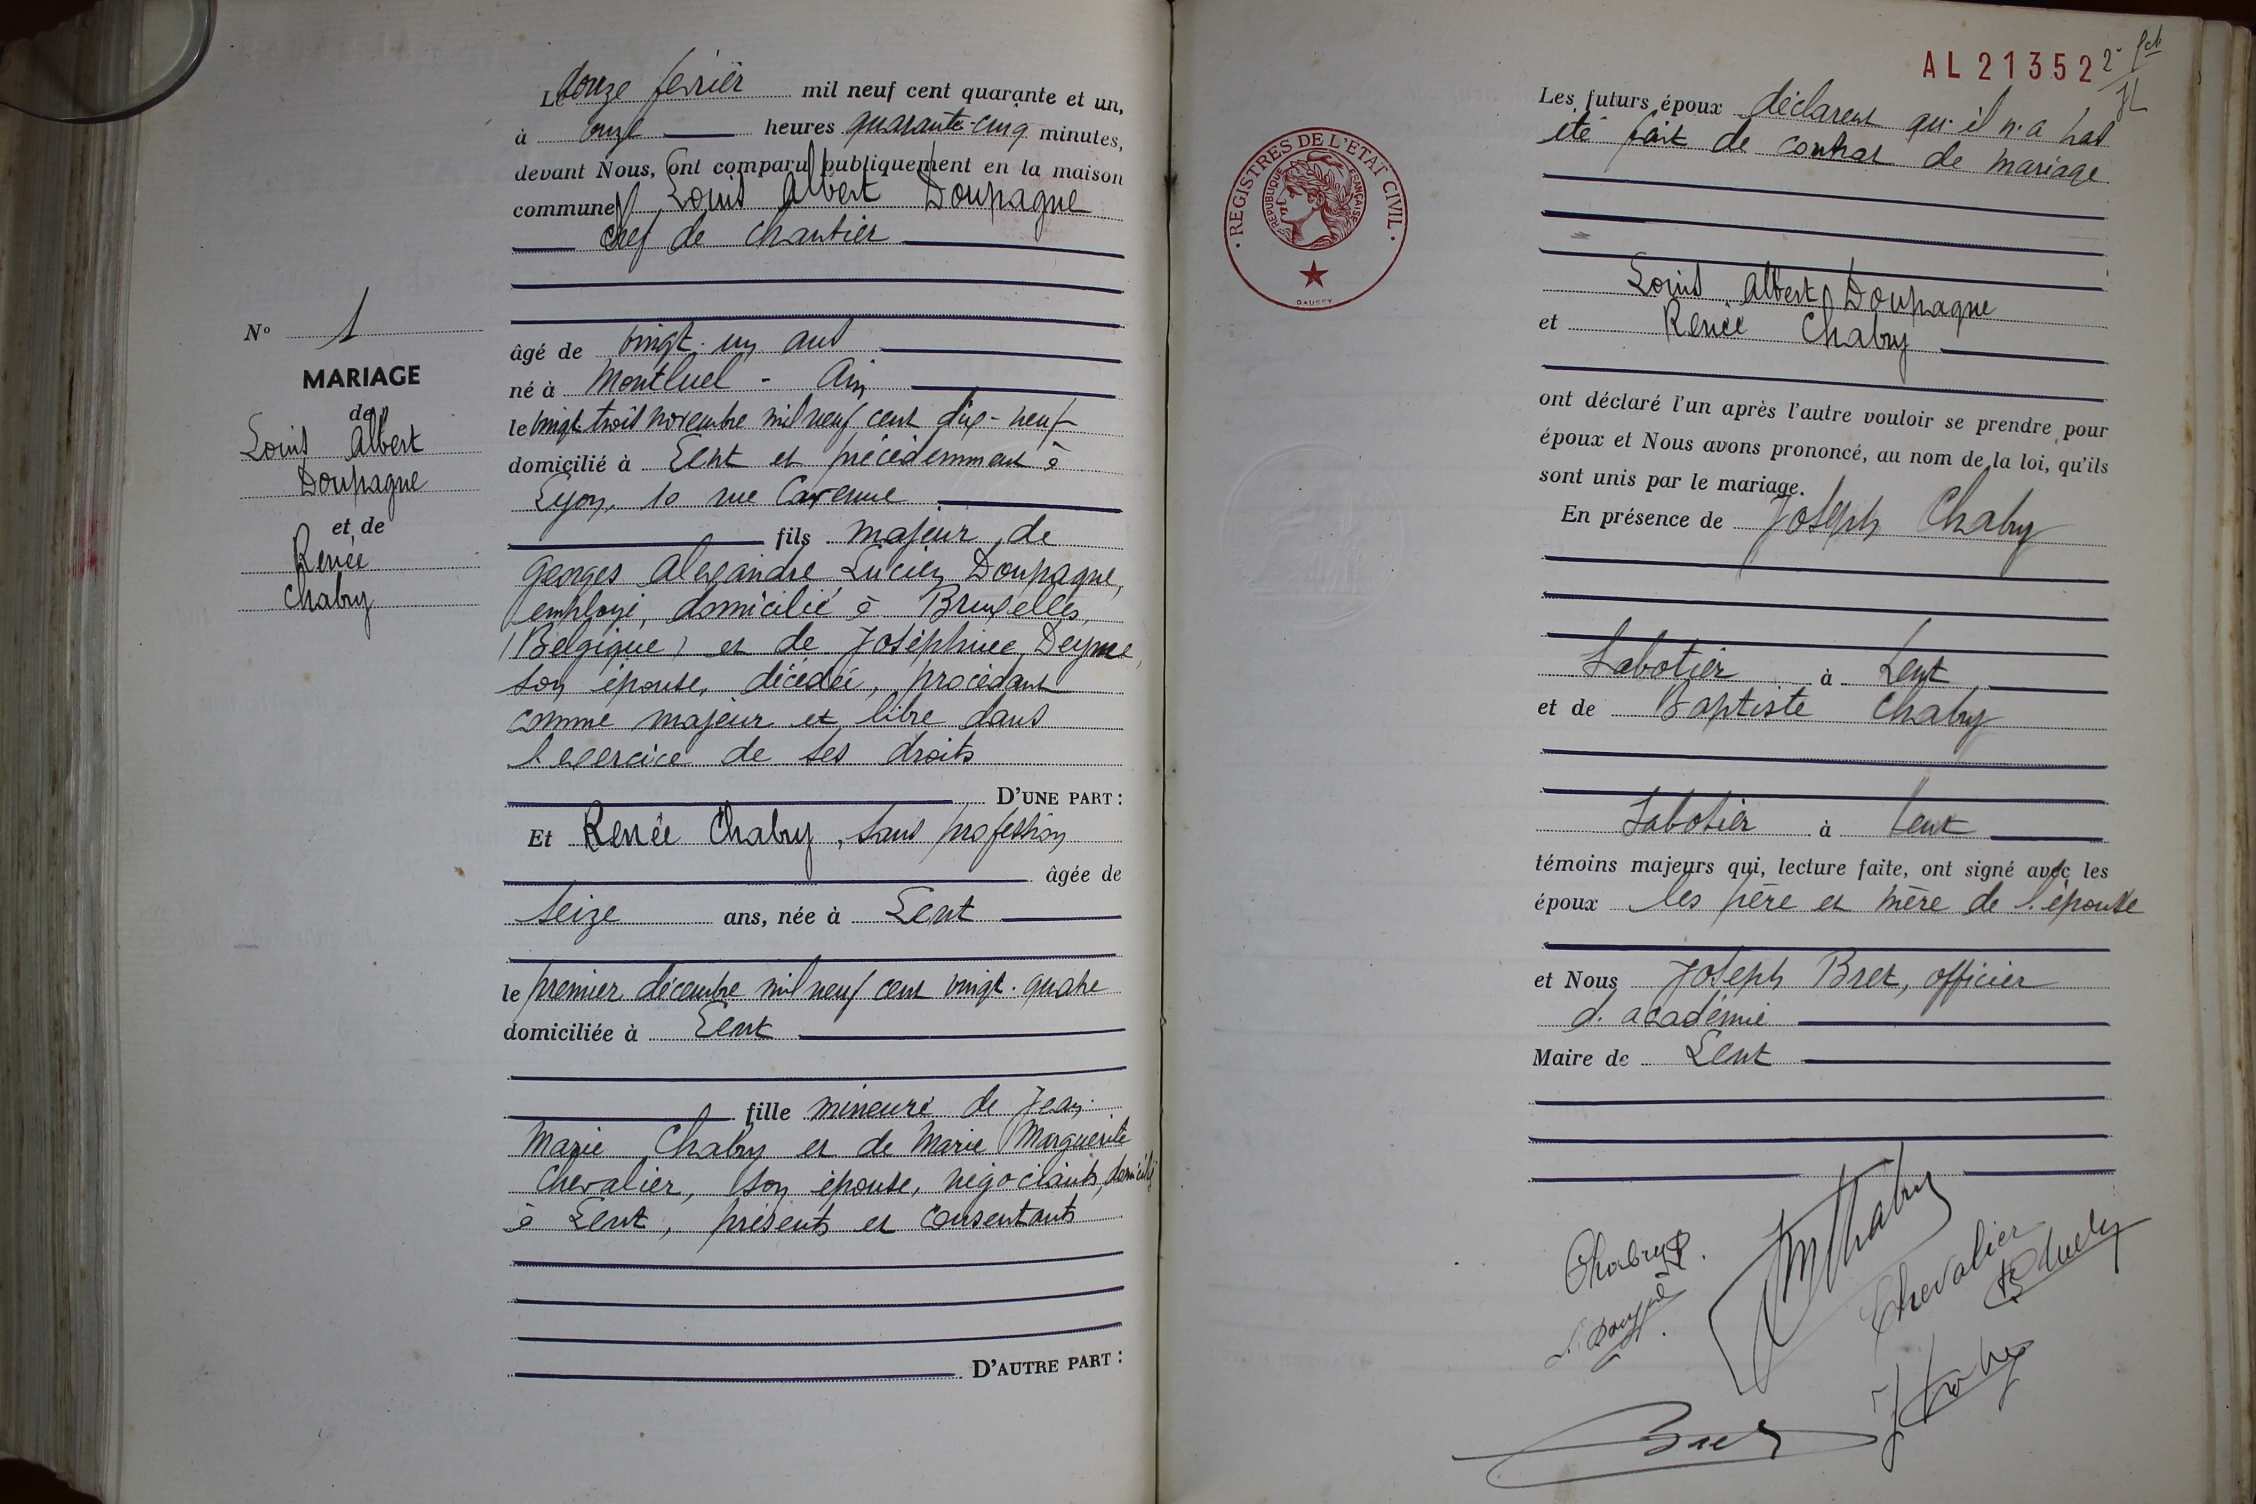 Le douze février mil neuf cent quarante et un,
à onze heures quarante-cinq minutes,
devant Nous, ont comparu publiquement en la maison
commune Louis Albert Doupagne
chef de chantier
âgé de vingt-un ans
né à Montluel - Ain
le vingt-trois novembre mil neuf cent dix-neuf
domicilié à Lent et précédemment à
Lyon, 10 rue Cavenne
fils majeur de
Georges Alexandre Lucien Doupagne,
employé, domicilié à Bruxelles,
(Belgique) et de Joséphine Deyme,
son épouse, décédée, procédant
comme majeur et libre dans
l'exercice de ses droits
D'UNE PART :
Et Renée Chabry, sans profession
âgée de
seize ans, née à Lent
le premier décembre mil neuf cent vingt-quatre
domiciliée à Lent
fille mineure de Jean-
Marie Chabry et de Marie Marguerite
Chevalier, son épouse, négociants, domiciliés
à Lent, présents et consentants
D'AUTRE PART :
N° 1
MARIAGE
de
Louis Albert
Doupagne
et de
Renée
Chabry
AL 21352
2e
Les futurs époux déclarent qu'il n'a pas
été fait de contrat de mariage
REGISTRES DE L'ETAT CIVIL
REPUBLIQUE FRANÇAISE
DAUSSY
Louis Albert Doupagne
et Renée Chabry
ont déclaré l'un après l'autre vouloir se prendre pour
époux et Nous avons prononcé, au nom de la loi, qu'ils
sont unis par le mariage.
En présence de Joseph Chabry
Sabotier à Lent
et de Baptiste Chabry
Sabotier à Lent
témoins majeurs qui, lecture faite, ont signé avec les
époux les père et mère de l'épouse
et Nous Joseph Bret, officier
d'académie
Maire de Lent
Chabry R.
JMChabry
Chevalier
J Chabry
Bret